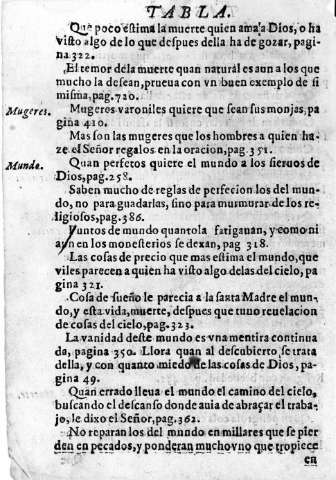 TABLA.
Quã poco estima la muerte quien ama a Dios, o ha
visto algo de lo que despues della ha de gozar, pagi-
na 322.
El temor dela muerte quan natural es aun a los que
mucho la desean, prueua con vn buen exemplo de si
misma, pag. 720.
Mugeres. Mugeres varoniles quiere que sean sus monjas, pa
gina 410.
Mas son las mugeres que los hombres a quien ha-
ze el Señor regalos en la oracion, pag. 351.
Mundo. Quan perfetos quiere el mundo a los sieruos de
Dios, pag. 258.
Saben mucho de reglas de perfecion los del mun-
do, no para guardarlas, sino para murmurar de los re-
ligiosos, pag. 386.
Puntos de mundo quanto la fatigauan, y como ni
aun en los monesterios se dexan, pag 318.
Las cosas de precio que mas estima el mundo, que
viles parecen a quien ha visto algo delas del cielo, pa
gina 321.
Cosa de sueño le parecia a la santa Madre el mun-
do, y esta vida, muerte, despues que tuuo reuelacion
de cosas del cielo, pag. 323.
La vanidad deste mundo es vna mentira continua
da, pagina 350. Llora quan al descubierto se trata
della, y con quanto miedo de las cosas de Dios, pa-
gina 49.
Quan errado lleua el mundo el camino del cielo,
buscando el descanso donde auia de abraçar el traba-
jo, le dixo el Señor, pag. 362.
No reparan los del mundo en millares que se pier
den en pecados, y ponderan mucho vno que tropiece
en